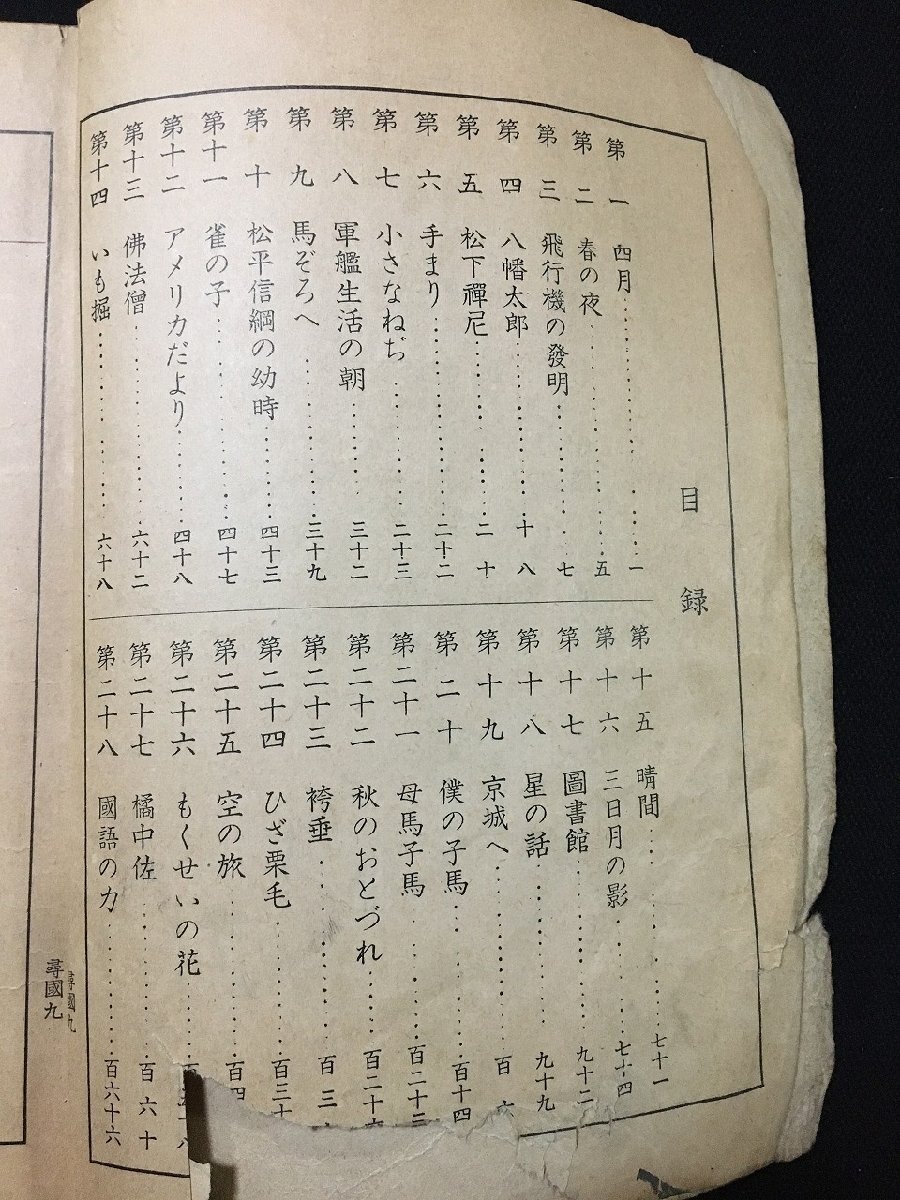 目録
第一 四月 一
第二 春の夜 五
第三 飛行機の發明 七
第四 八幡太郎 十八
第五 松下禪尼 二十
第六 手まり 二十二
第七 小さなねぢ 二十三
第八 軍艦生活の朝 三十二
第九 馬ぞろへ 三十九
第十 松平信綱の幼時 四十三
第十一 雀の子 四十七
第十二 アメリカだより 四十八
第十三 佛法僧 六十二
第十四 いも掘 六十八
第十五 晴間 七十一
第十六 三日月の影 七十四
第十七 圖書館 九十二
第十八 星の話 九十九
第十九 京城へ 百六
第二十 僕の子馬 百十四
第二十一 母馬子馬 百二十三
第二十二 秋のおとづれ 百二十
第二十三 袴垂 百三
第二十四 ひざ栗毛 百三十
第二十五 空の旅 百四
第二十六 もくせいの花
第二十七 橘中佐 百六十
第二十八 國語の力 百六十六
尋國九
尋國九